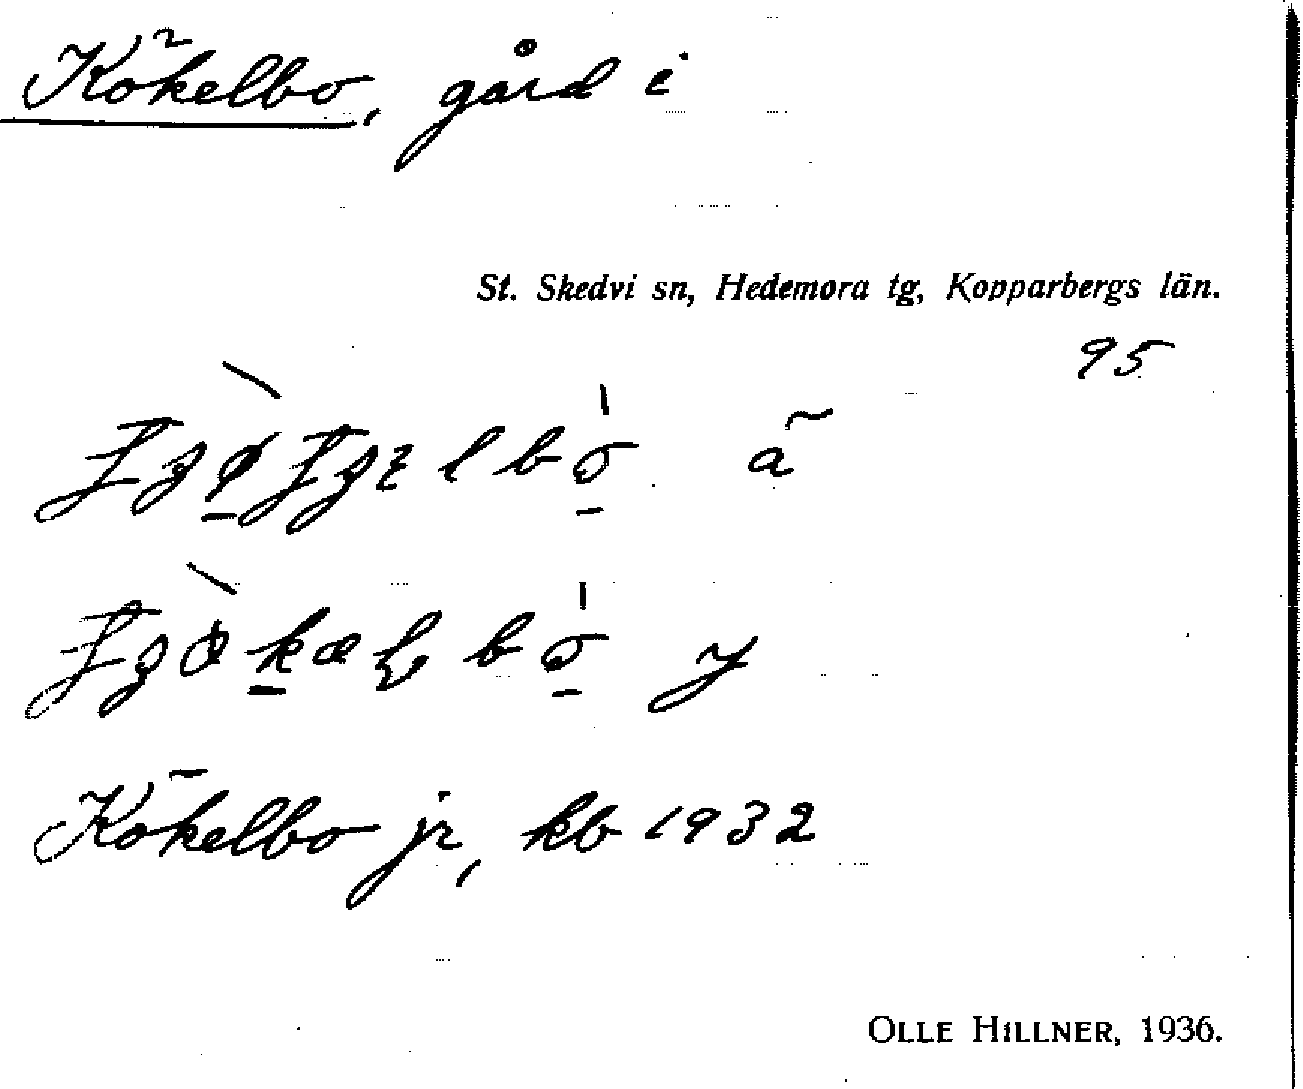 Kökelbo, gård i
St. Skedvi sn, Hedemora tg, Kopparbergs län.
95
ã
y
Kökelbo jr, kb 1932
OLLE HILLNER, 1936.